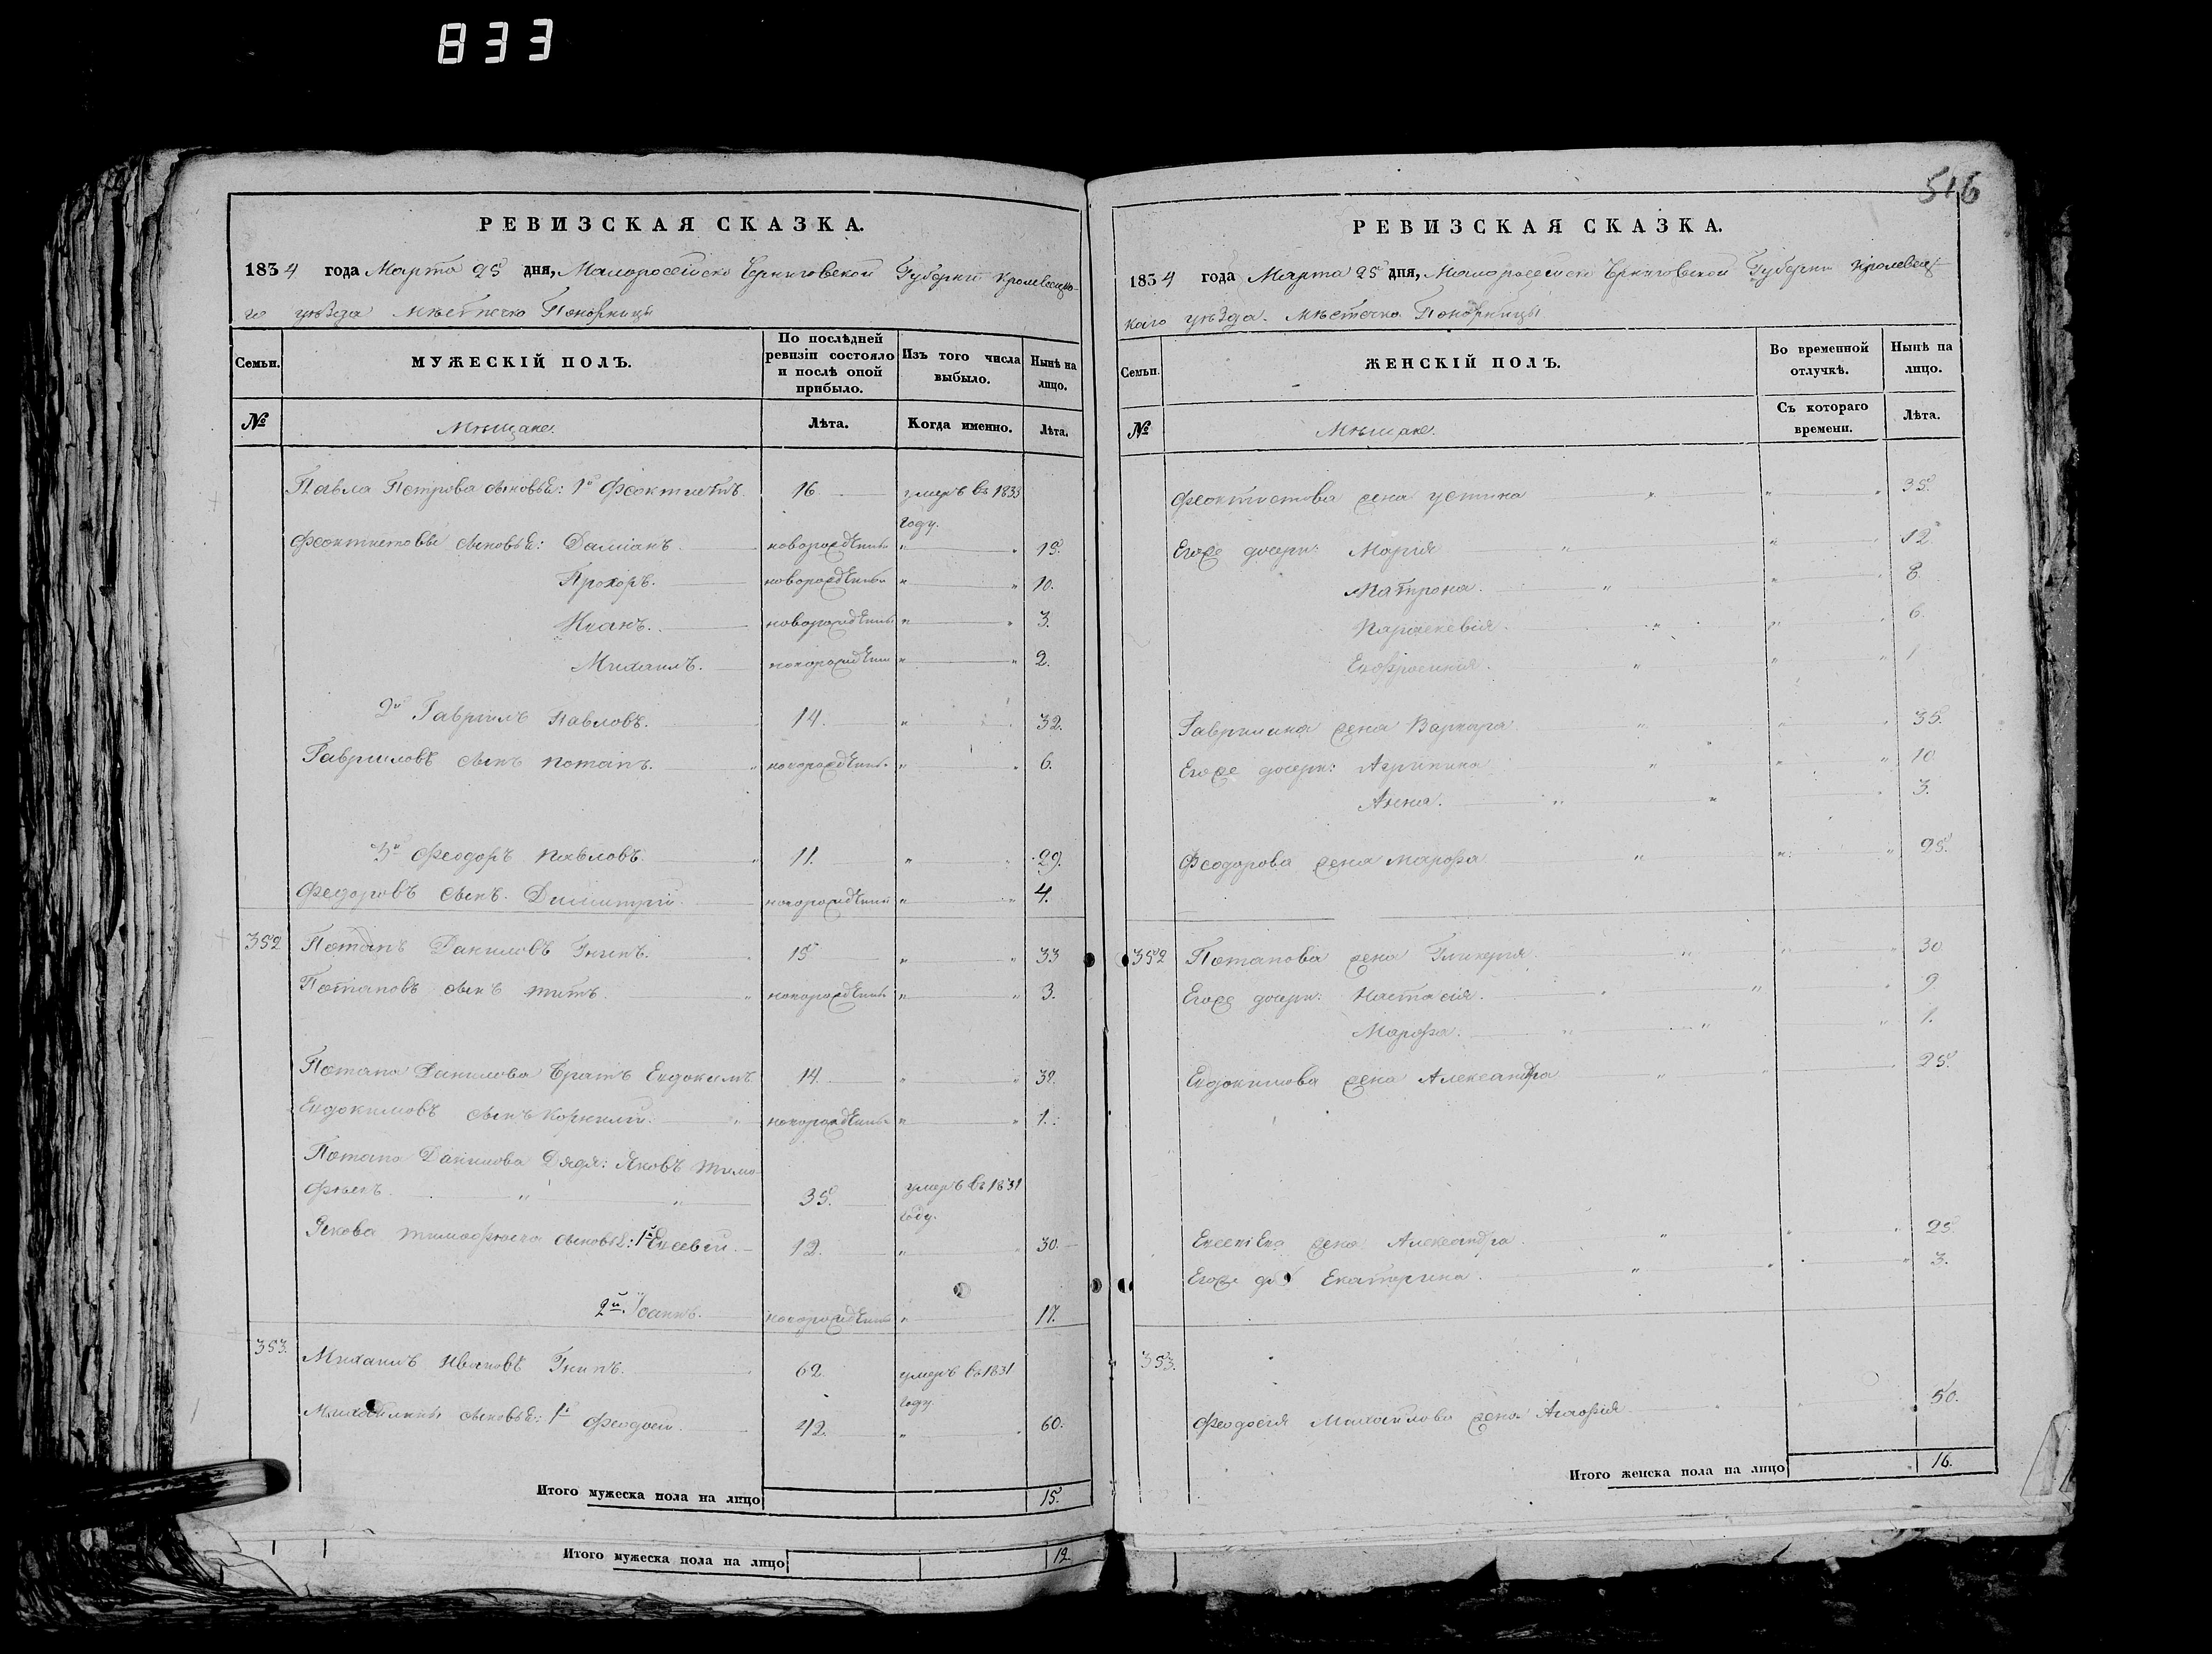 833
РЕВИЗСКАЯ СКАЗКА.
1834 года Марта 25 дня, Малоросейско Черниговской Губернии Кролевецко-
го уѣзда Мѣстечка Понорницы
Семьи.
МУЖЕСКІЙ ПОЛЪ.
По послѣдней ревизіи состояло и послѣ оной прибыло.
Изъ того числа выбыло.
Нынѣ на лицо.
№ Мѣщане. Лѣта. Когда именно. Лѣта.
Павла Петрова сыновьѣ: 1й Феоктистъ 16 умеръ въ 1833
году.
Феоктистовы сыновьѣ: Даміанъ. новорожденный " " 15.
Прохоръ. новорожденный " " 10.
Иванъ. новорожденный " " 3.
Михаилъ. новорожденный " " 2.
2й Гавріилъ Павловъ. 14. " 32.
Гавриловъ сынъ Потапъ. новорожденный " " 6.
3й Феодоръ Павловъ. 11. " 29.
Федоровъ сынъ Димитрій. новорожденный " " 4.
352 Потапъ Даниловъ 15 " " 33
Потаповъ сынъ Титъ. новорожденный " " 3.
Потапа Данилова братъ Евдокимъ. 14. " " 32.
Евдокимовъ сынъ Корнилій. новорожденный " " 1.
Потапа Данилова Дядя: Яковъ Тимо-
фѣевъ. 35. умеръ въ 1831
году.
Якова Тимофѣева сыновьѣ: 1й Евсевій. 12. " 30.
2й Іоаннъ. новорожденный " 17.
353. Михаилъ Ивановъ 62. умеръ въ 1831
году
Михайлины сыновьѣ: 1й Феодосій. 42. " 60.
Итого мужеска пола на лицо 15.
Итого мужеска пола на лицо 12.
516
РЕВИЗСКАЯ СКАЗКА.
1834 года Марта 25 дня, Малоросейско Черниговской Губернии Кролевец-
каго уѣзда. Мѣстечка Понорницы
Семьи.
ЖЕНСКІЙ ПОЛЪ.
Во временной отлучкѣ.
Нынѣ на лицо.
№ Мѣщане. Съ котораго времени. Лѣта.
Феоктистова жена Устина " " " 35.
Егоже дочери: Марія " " 12.
Матрона. " " 8.
Параскевія. " " 6.
Евфросинія. " " 1
Гаврилина жена Варвара " " 35.
Егоже дочери: Агрипина " " 10
Анна. " " 3.
Феодорова жена Марфа " " 25.
352 Потапова жена Гликерія " " 30
Егоже дочери: Настасія. " " 9
Марфа. " " 1.
Евдокимова жена Александра " " 25.
Евсевіева жена Александра. " " 25.
Егоже Екатерина. " " 3.
353.
Феодосія Михайлова жена Агафія 50.
Итого женска пола на лицо 16.